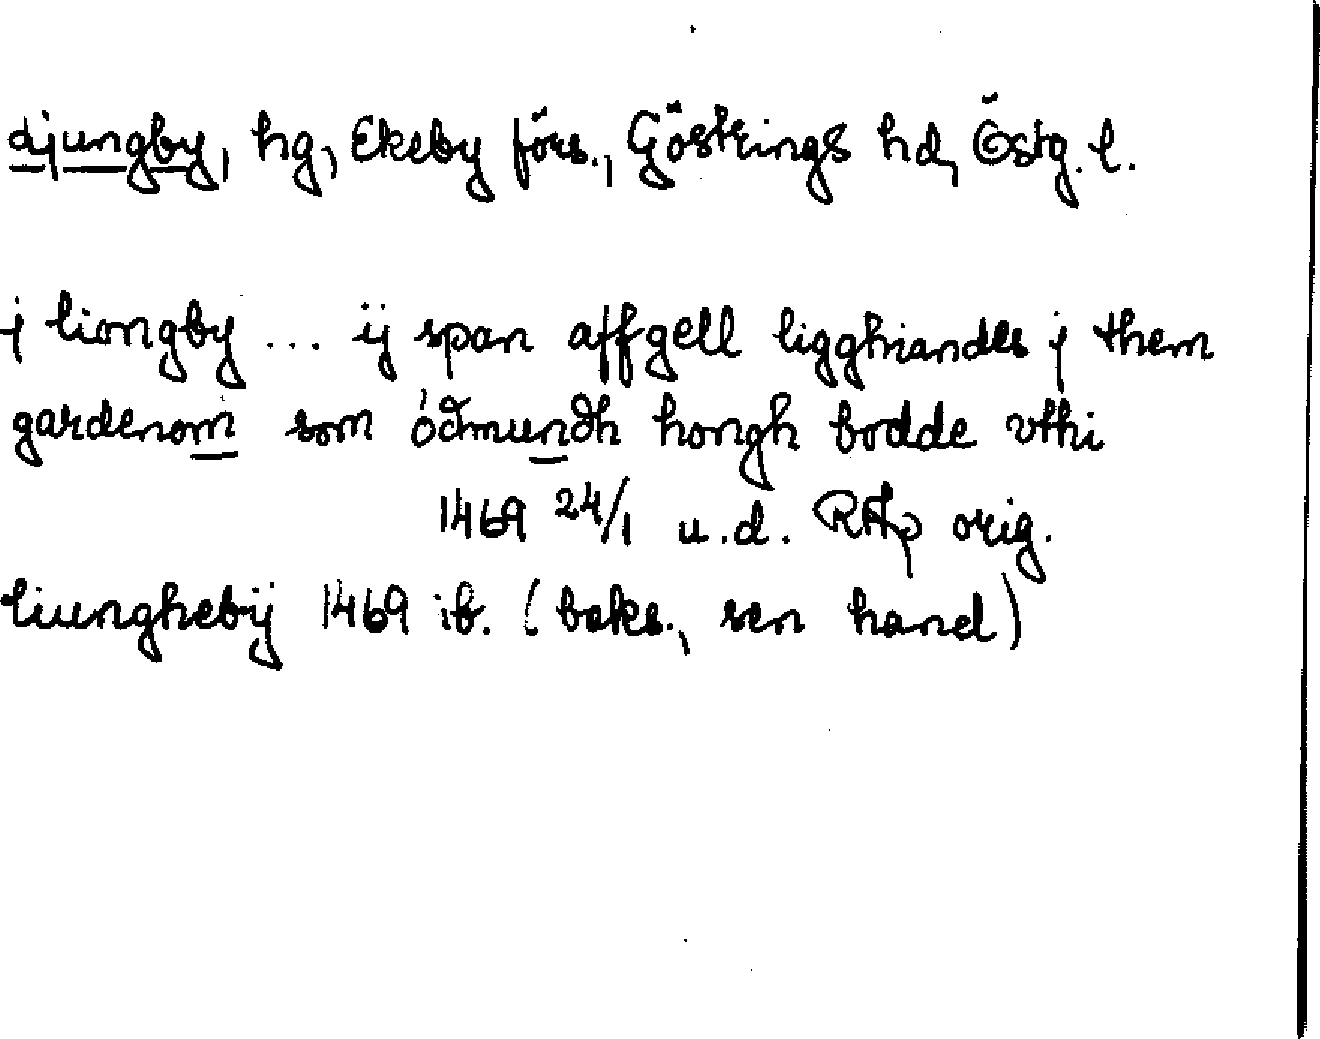 Ljungby, hg, Ekeby förs., Göstrings hd, Östg. l.
j liongby ... ij span affgell ligghiandes j them
gardenom som ódhmundh hongh bodde vthi
1469 24/1 u.d. RAp orig.
liunghebij 1469 ib. (baks., sen hand)